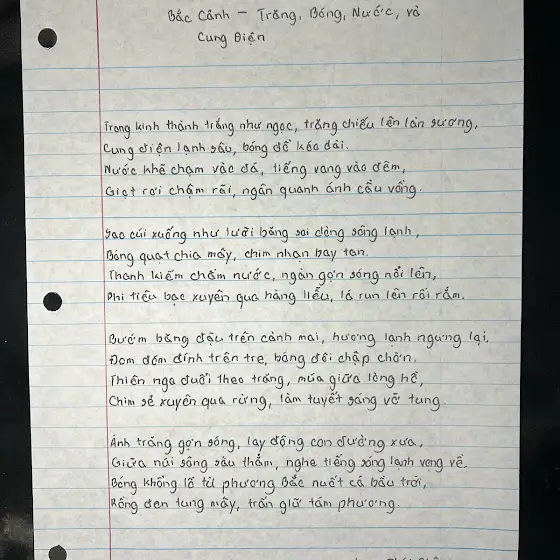 Bắc Cảnh – Trăng, Bóng, Nước, và
Cung Điện
Trong kinh thành trắng như ngọc, trăng chiếu lên làn sương,
Cung điện lạnh sâu, bóng đổ kéo dài.
Nước khẽ chạm vào đá, tiếng vang vào đêm,
Giọt rơi chậm rãi, ngân quanh ánh cầu vồng.
Sao cúi xuống như lưỡi băng soi dòng sông lạnh,
Bóng quạt chia mây, chim nhạn bay tan.
Thanh kiếm chấm nước, ngàn gợn sóng nổi lên,
Phi tiêu bạc xuyên qua hàng liễu, lá run lên rồi rắm.
Bướm băng đậu trên cành mai, hương lạnh ngưng lại,
Đom đóm dính trên tre, bóng đôi chập chờn.
Thiên nga đuổi theo trăng, múa giữa lòng hồ,
Chim sẻ xuyên qua rừng, làm tuyết sáng vỡ tung.
Ánh trăng gợn sóng, lay động con đường xưa,
Giữa núi sông sâu thẳm, nghe tiếng sóng lạnh vọng về.
Bóng khổng lồ từ phương Bắc nuốt cả bầu trời,
Rồng đen tung mây, trấn giữ tám phương.